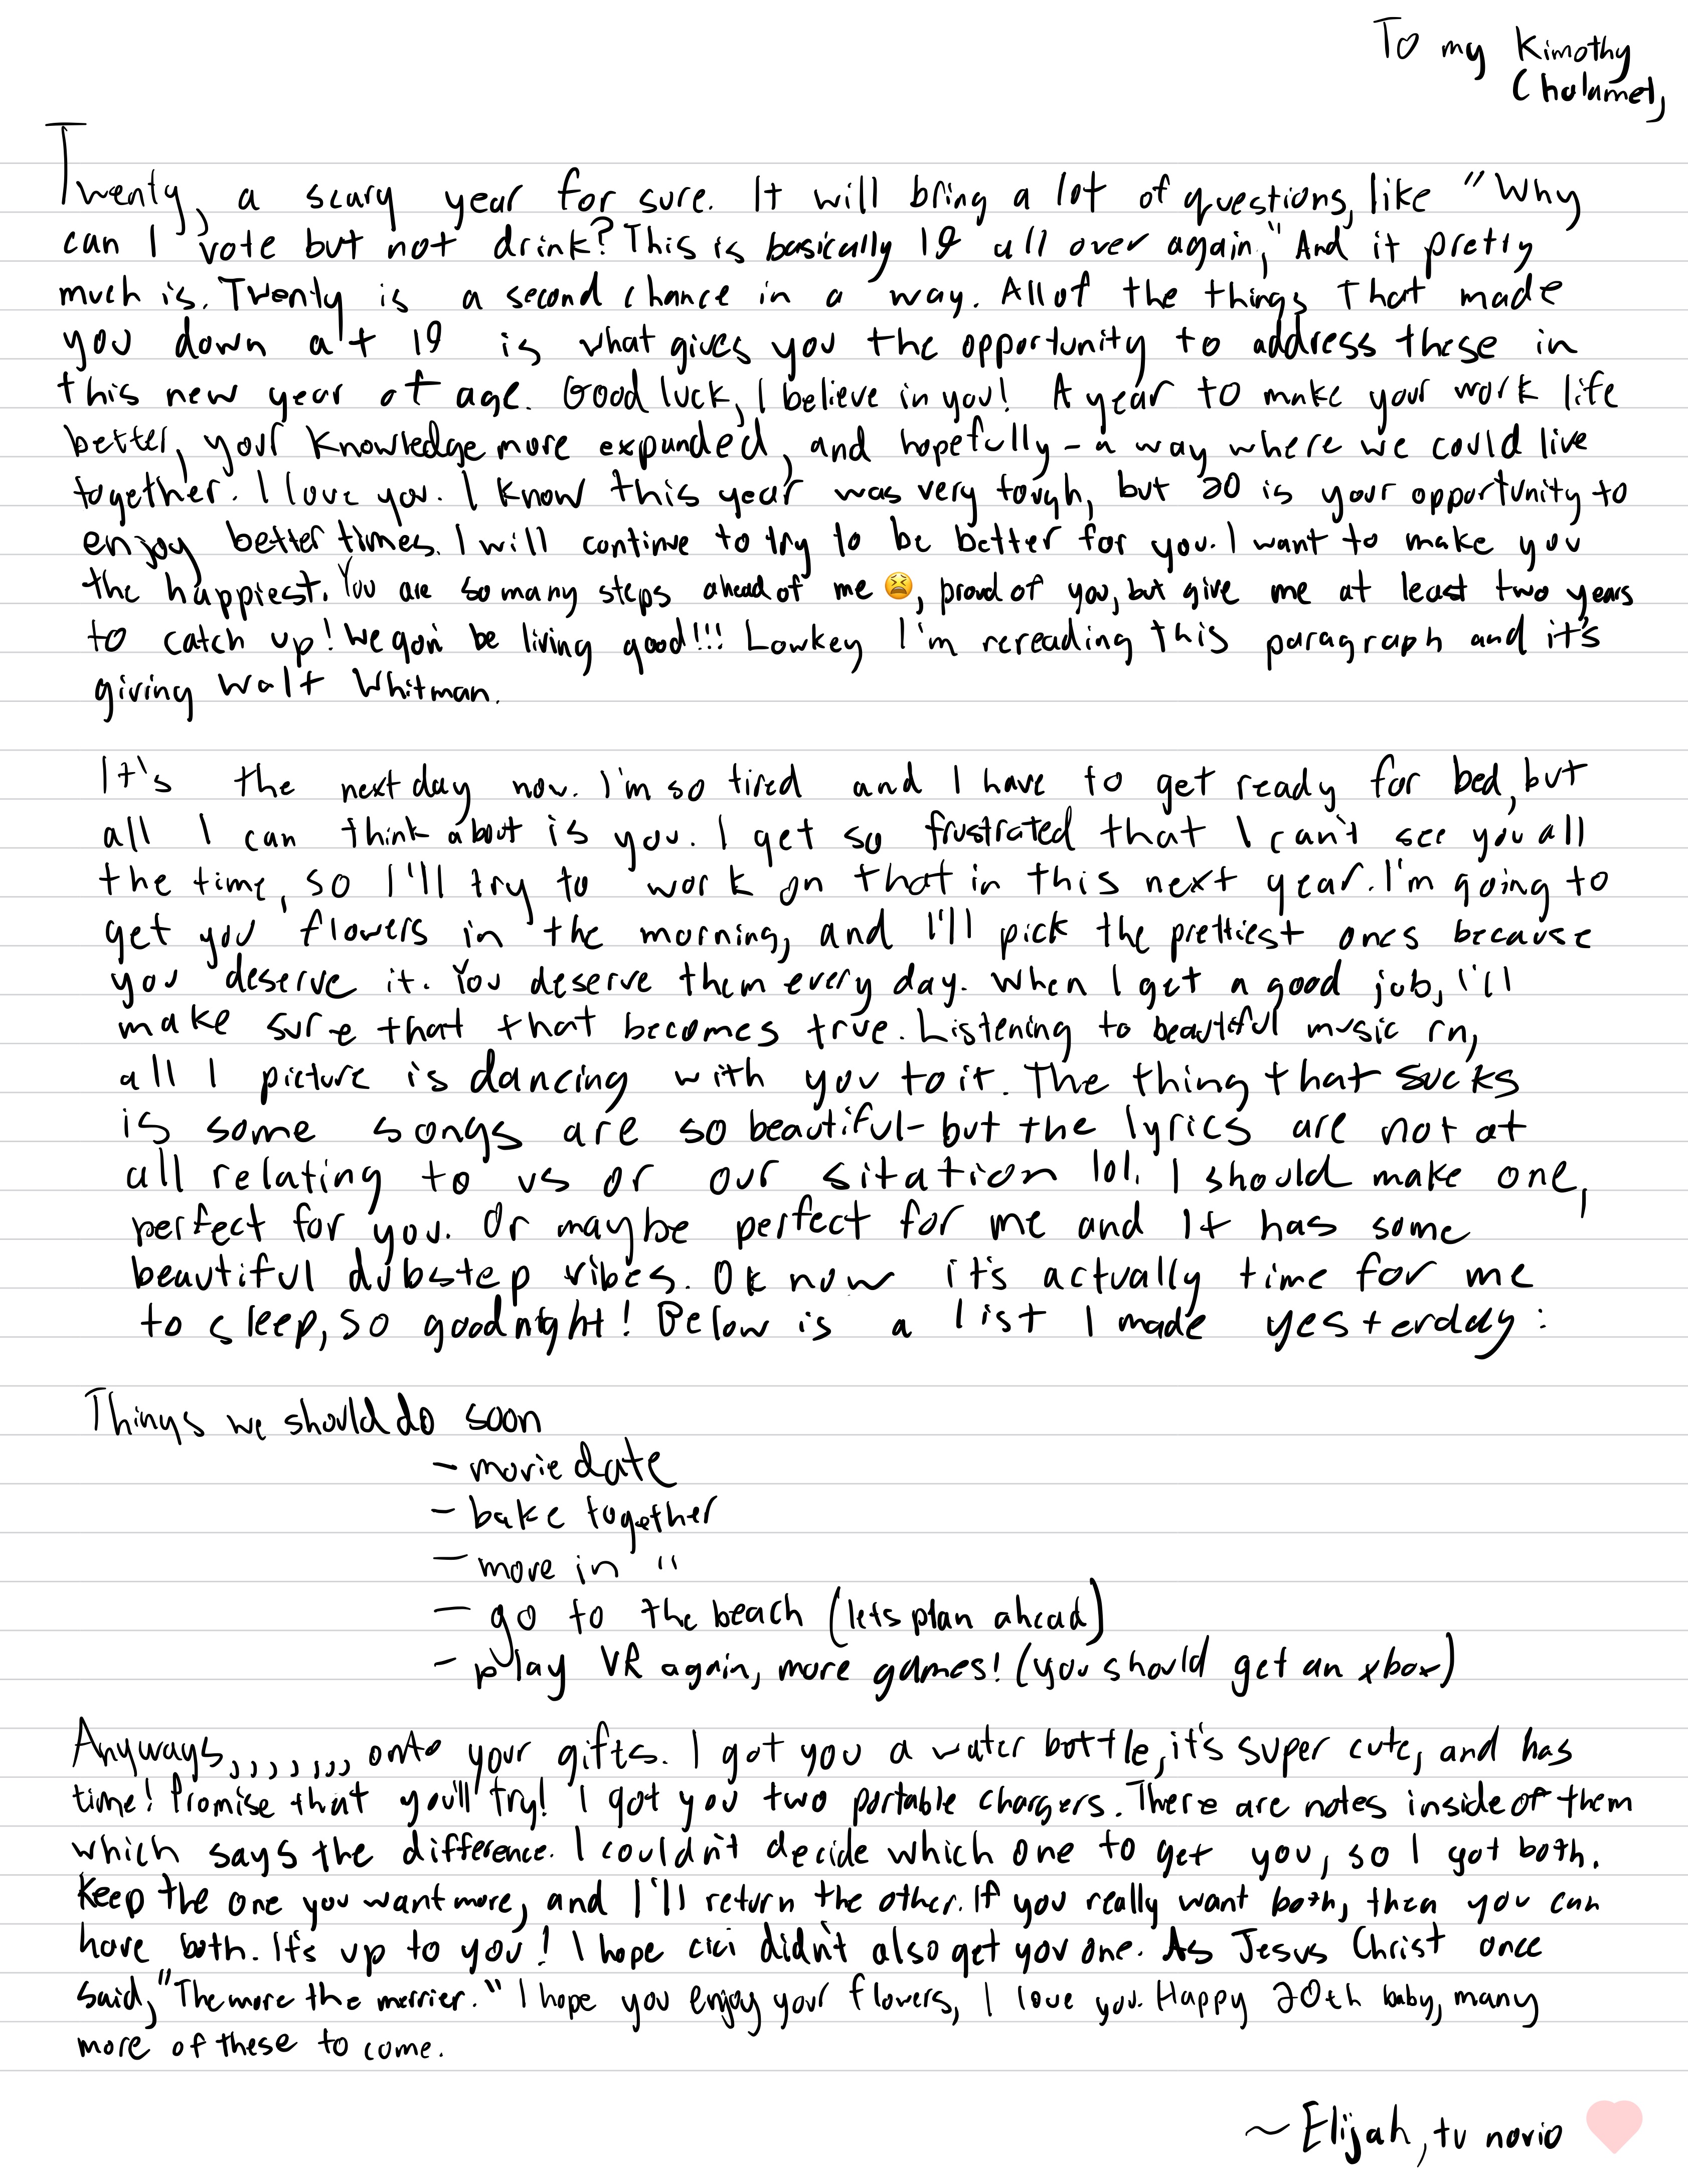 To my Kimothy
Chalamet,
Twenty, a scary year for sure. It will bring a lot of questions, like "Why
can I vote but not drink? This is basically 19 all over again," And it pretty
much is. Twenty is a second chance in a way. All of the things that made
you down at 19 is what gives you the opportunity to address these in
this new year of age. Good luck, I believe in you! A year to make your work life
better, your knowledge more expanded, and hopefully - a way where we could live
together. I love you. I know this year was very tough, but 20 is your opportunity to
enjoy better times. I will continue to try to be better for you. I want to make you
the happiest. You are so many steps ahead of me 😫, proud of you, but give me at least two years
to catch up! We gon' be living good!!! Lowkey I'm rereading this paragraph and it's
giving Walt Whitman.
It's the next day now. I'm so tired and I have to get ready for bed, but
all I can think about is you. I get so frustrated that I can't see you all
the time, so I'll try to work on that in this next year. I'm going to
get you flowers in the morning, and I'll pick the prettiest ones because
you deserve it. You deserve them every day. When I get a good job, I'll
make sure that that becomes true. Listening to beautiful music rn,
all I picture is dancing with you to it. The thing that sucks
is some songs are so beautiful - but the lyrics are not at
all relating to us or our sitation lol. I should make one,
perfect for you. Or maybe perfect for me and it has some
beautiful dubstep vibes. Ok now it's actually time for me
to sleep, so goodnight! Below is a list I made yesterday:
Things we should do soon
- movie date
- bake together
- move in "
- go to the beach (lets plan ahead)
- play VR again, more games! (you should get an xbox)
Anyways,,,,,,, onto your gifts. I got you a water bottle, it's super cute, and has
time! Promise that you'll try! I got you two portable chargers. There are notes inside of them
which says the difference. I couldn't decide which one to get you, so I got both.
Keep the one you want more, and I'll return the other. If you really want both, then you can
have both. It's up to you! I hope cici didn't also get you one. As Jesus Christ once
said, "The more the merrier." I hope you enjoy your flowers, I love you. Happy 20th baby, many
more of these to come.
~ Elijah, tu novio